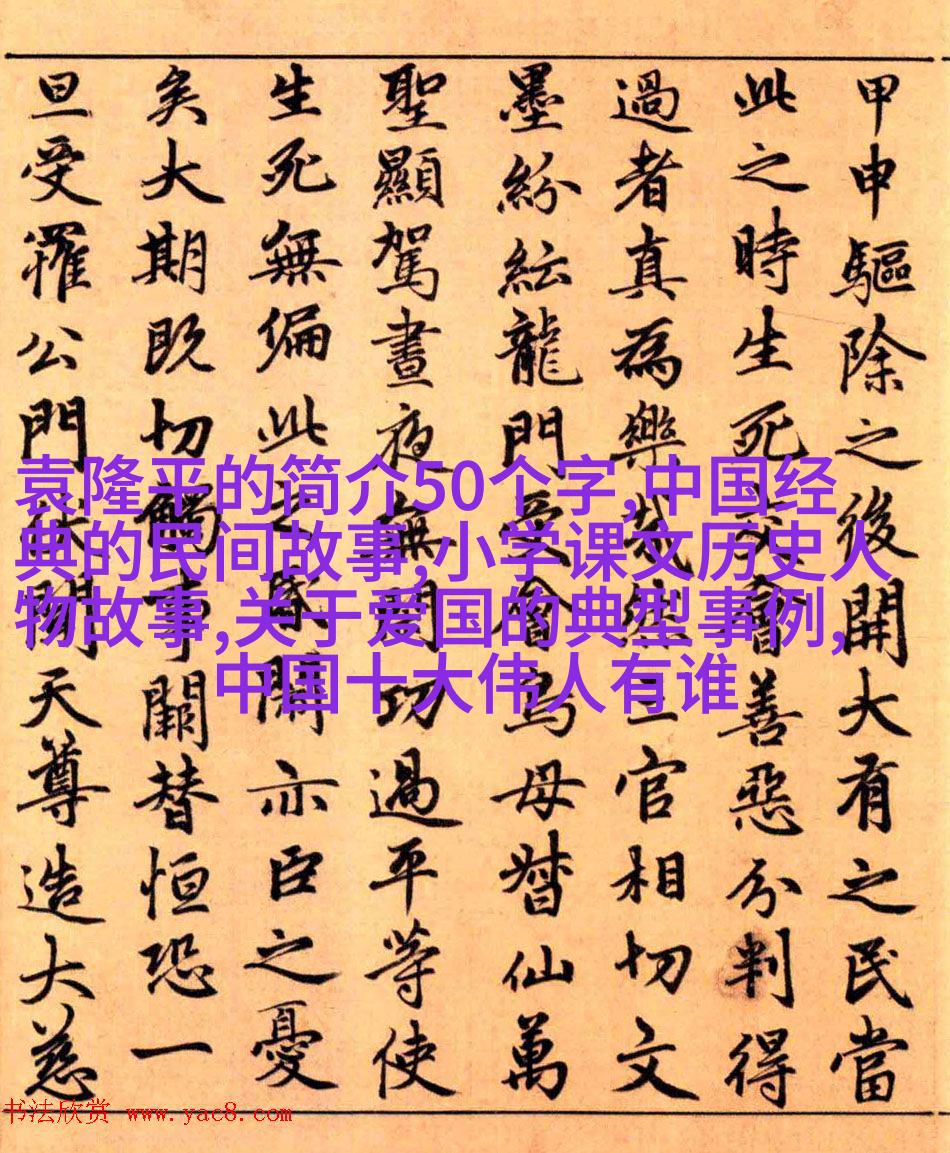 甲申驅除之後開大有之民當
此之時生死會善惡分判得
過者真為樂哉然三官相切文
墨紛紜龍門受會鳥母督仙萬
聖顯駕晝夜無間功過平等使
生死無偏此之亦臣之憂
矣大期既切觸事闕替恒恐一
旦受罹公門天尊造大慈
袁隆平的简介50个字,中国经
典的民间故事,小学课文历史人
物故事,关于爱国的典型事例,
中国十大伟人有谁
书法欣赏 www.yac8.com